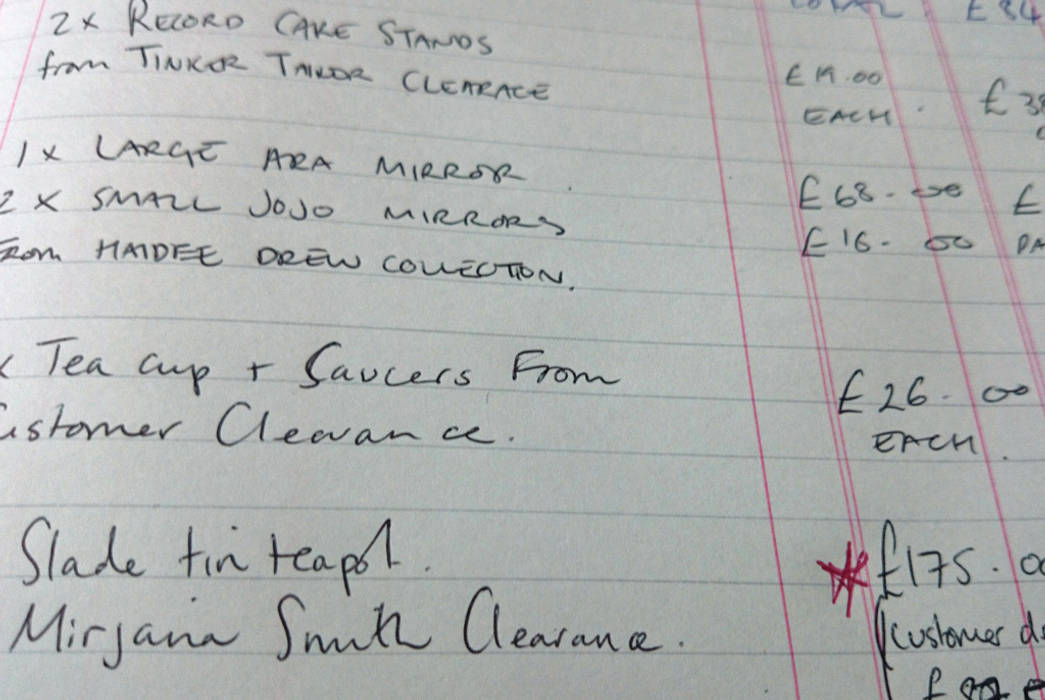 £84
2 x RECORD CAKE STANDS
from TINKER TAILOR CLEARACE
£19.00
EACH. £38
1 x LARGE ARA MIRROR
£68-00 £
2 x SMALL JOJO MIRRORS
£16-00
From HAIDEE DREW COLLECTION.
Tea cup + Saucers From
£26.00
Customer Clearance.
EACH.
Slade tin teapot.
£175.00
Mirjana Smith Clearance.
(customer
£